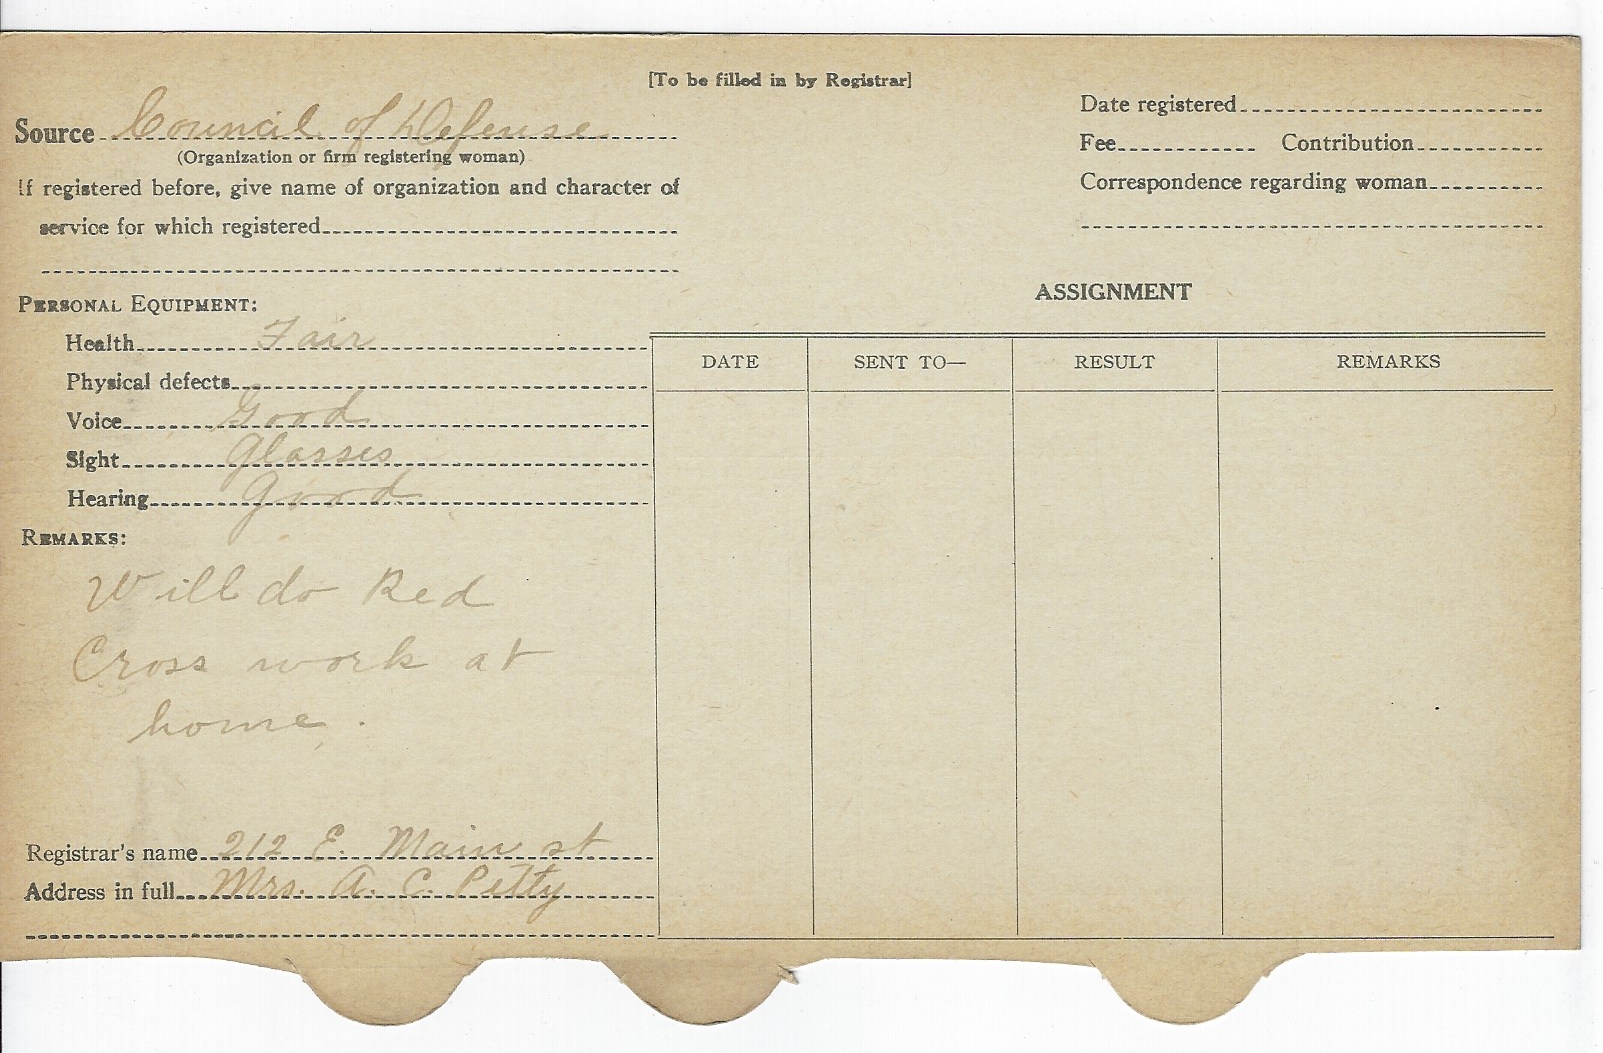 [To be filled in by Registrar]
Source Council of Defense
(Organization or firm registering woman)
If registered before, give name of organization and character of
service for which registered
PERSONAL EQUIPMENT:
Health Fair
Physical defects
Voice Good
Sight Glasses
Hearing Good
REMARKS:
Will do Red
Cross work at
home.
Registrar's name 212 E. Main st
Address in full Mrs. A. C. Petty
Date registered
Fee Contribution
Correspondence regarding woman
ASSIGNMENT
DATE SENT TO— RESULT REMARKS